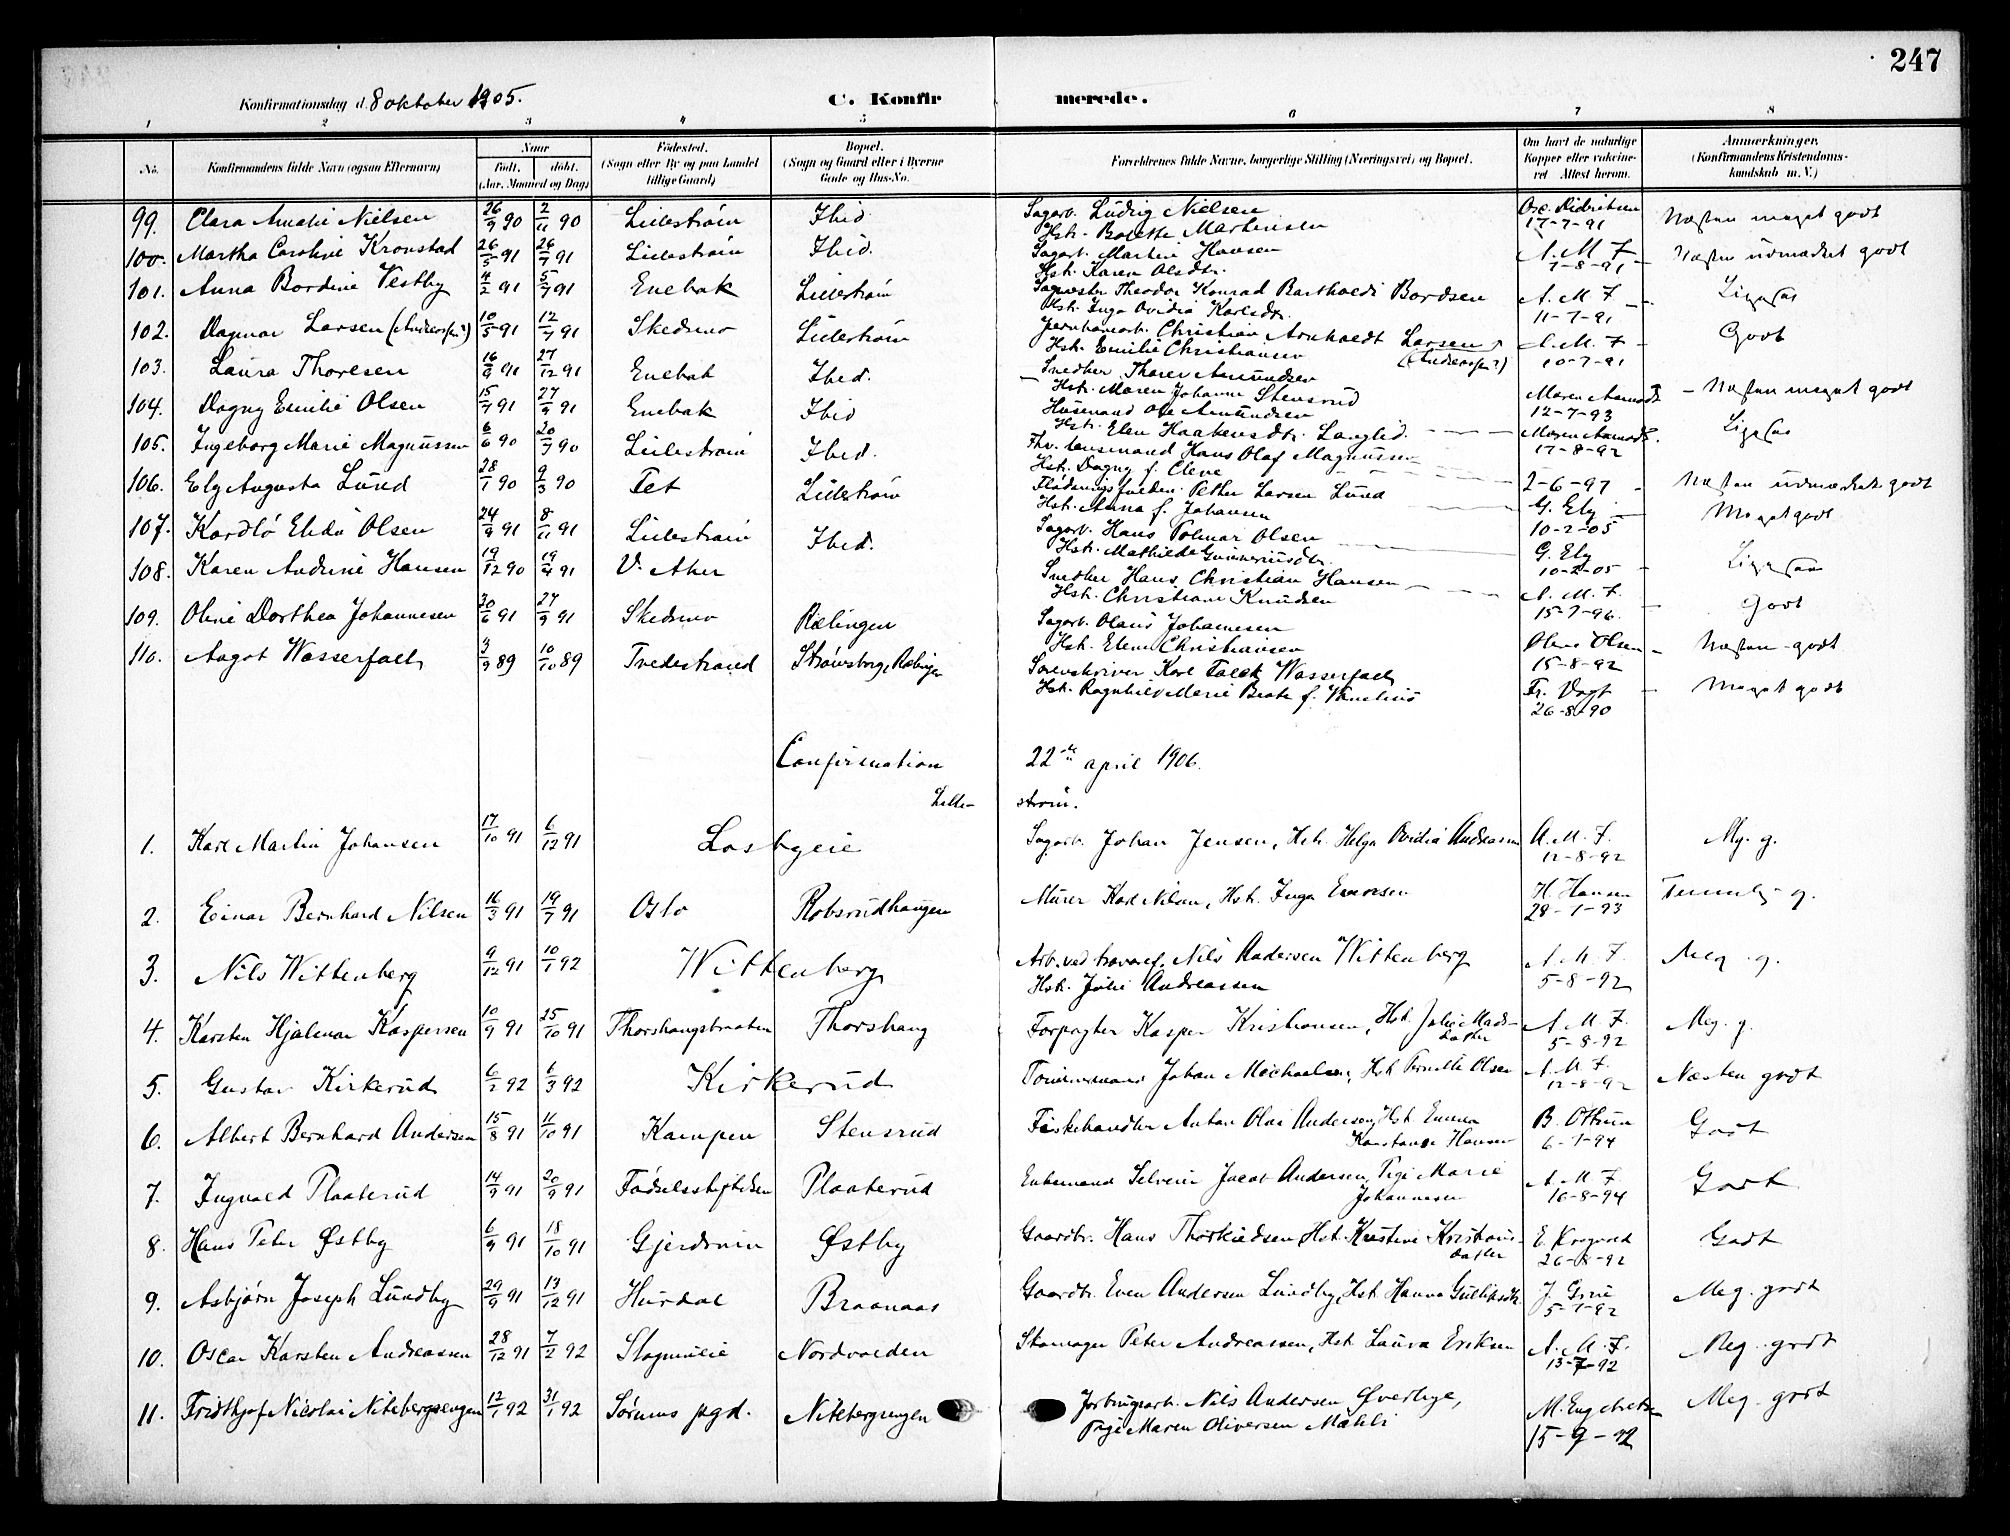 247
Konfirmationsdag d. 8 oktober 1905. C. Konfirmerede.
1 2 3 4 5 6 7 8
No. Konfirmandens fulde Navn (ogsaa Efternavn) Naar født. døbt. (Aar, Maaned og Dag) Fødested. (Sogn eller By og paa Landet tillige Gaard) Bopæl. (Sogn og Gaard eller i Byerne Gade og Hus-No. Forældrenes fulde Navne, borgerlige Stilling (Næringsvei) og Bopæl. Om havt de naturlige Kopper eller vaksineret. Attest herom. Anmærkninger. (Konfirmandens Kristendomskundskab m. V.)
99. Clara Amalie Nielsen 26/9 90 2/11 90 Lillestrøm Ibid. Sagarb. Ludvig Nielsen Hst. Bolette Martinsen Osc. Didriksen 17-7-91 Næsten meget godt
100. Martha Caroline Kronstad 26/5 91 26/7 91 Lillestrøm Ibid. Sagarb. Martin Hansen Hst. Karen Olsdtr. A. M. F. 7-8-91 Næsten udmærket godt
101. Anna Bordine Vestby 4/2 91 5/7 91 Enebak Lillestrøm Sagmester Theodor Konrad Bartholdi Bordsen Hst. Inga Ovidia Karlsdtr. A. M. F. 11-7-91 Ligesaa
102. Dagmar Larsen (Andersen?) 10/5 91 12/7 91 Skedsmo Lillestrøm Jernbanearb. Christian Arnholdt Larsen (Andersen?) Hst. Emilie Christiansen A. M. F. 10-7-91 Godt
103. Laura Thoresen 16/9 91 27/12 91 Enebak Ibid. Snedker Thorer Amundsen Hst. Maren Johanne Stensrud Maren Aamodt 12-7-93 Næsten meget godt
104. Dagny Emilie Olsen 15/7 91 27/9 91 Enebak Ibid Husmand Ole Amundsen Hst. Elen Haakensdtr. Langlid. Maren Aamodt. 17-8-92 Ligesaa
105. Ingeborg Marie Magnussen 6/6 90 20/7 90 Lillestrøm Ibid. Fhv. Lensmand Hans Olaf Magnussen Hst. Dagny f. Cleve 2-6-97 Næsten udmærket godt
106. Ely Augusta Lund 28/1 90 9/3 90 Fet Lillestrøm Flødningsfuldm. Petter Larsen Lund Hst. Anna f. Johansen G. Ely 10-2-05 Meget godt
107. Kordlo Elida Olsen 24/9 91 8/11 91 Lillestrøm Ibid. Sagarb. Hans Polmar Olsen Hst. Mathilde Gunneriusdtr. G. Ely 10-2-05 Ligesaa
108. Karen Andrine Hansen 19/12 90 19/4 91 V. Aker Snedker Hans Christian Hansen Hst. Christiane Knudsen A. M. F. 15-7-96. Godt
109. Oline Dorthea Johannesen 30/6 91 27/9 91 Skedsmo Rælingen Sagarb. Olaus Johannesen Hst. Elene Christiansen Oline Olsen 15-8-92 Næsten godt
110. Aagot Wasserfall 3/9 89 10/10 89 Tvedestrand Strømsborg, Rælingen Sorenskriver Karl Falck Wasserfall Hst. Ragnhild Marie Beate f. Fr. Vogt 26-8-90 Meget godt
Confirmation 22de april 1906.
Lillestrøm.
1. Karl Martin Johansen 17/10 91 6/12 91 Losbyeie Sagarb. Johan Jensen, Hst. Helga Ovidia Andreasen A. M. F. 12-8-92 Mg. g.
2. Einar Bernhard Nilsen 16/3 91 19/7 91 Oslo Robsrudhaugen Murer Karl Nilsen, Hst. Inga Enersen H. Hansen 28-1-93 Temmelig g.
3. Nils Wittenberg 9/12 91 10/1 92 Wittenberg Arb. ved travaref. Nils Andersen Wittenberg Hst. Julie Andreassen A. M. F. 5-8-92 Meg. g.
4. Karsten Hjalmar Kaspersen 10/9 91 25/10 91 Thorshaugbraaten Thorshaug Forpagter Kasper Kristiansen, Hst. Julie Madsdatter A. M. F. 5-8-92 Meg. g.
5. Gustav Kirkerud 6/2 92 6/3 92 Kirkerud Tømmermand Johan Michaelsen, Hst. Pernille Olsen A. M. F. 12-8-92 Næsten godt
6. Albert Bernhard Andersen 15/8 91 11/10 91 Kampen Stensrud Fiskehandler Anton Olai Andersen, Hst. Emma Konstanse Hansen B. Ottesen 6-1-94 Godt
7. Ingvald Plaaterud 14/9 91 20/9 91 Fødselsstiftelsen Plaaterud Enkemand Selveier Jacob Andersen, Pige Marie Johannesen A. M. F. 16-8-94 Godt
8. Hans Peter Østby 6/9 91 18/10 91 Gjerdrum Østby Gaardbr. Hans Thorkildsen, Hst. Kristine Kristiansdatter E. Krogvold 26-8-92 Godt
9. Asbjørn Joseph Lundby 29/9 91 13/12 91 Hurdal Braanaas Gaardbr. Even Andersen Lundby, Hst. Hanna Gulliksdtr. J. Grue 5-7-92 Meg. godt
10. Oscar Karsten Andreassen 28/12 91 7/2 92 Slagmeie Nordvolden Skomager Peter Andreassen, Hst. Laura Eriksen A. M. F. 13-7-92 Meg. godt
11. Fridthjof Nicolai Nitebergsengen 12/1 92 31/1 92 Sørums pgd. Nitebergsengen Jordbrugsarb. Nils Andersen Øverbye, Pige Maren Oliversen Mæhli M. Engebretsen 15-9-92 Meg. godt